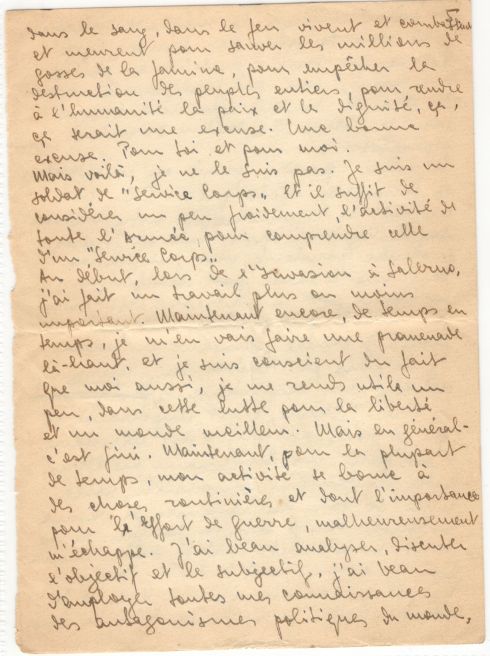 5
dans le sang, dans le feu vivent et combattent
et meurent pour sauver les millions de
gosses de la famine, pour empêcher la
destruction des peuples entiers, pour rendre
à l'humanité la paix et la dignité, ça,
ça serait une excuse. Une bonne
excuse. Pour toi et pour moi.
Mais voilà, je ne le suis pas. Je suis un
soldat de "Service Corps". Et il suffit de
considérer un peu froidement l'activité de
toute l'Armée, pour comprendre celle
d'un "Service Corps".
Au début, lors de l'Invasion à Salerno,
j'ai fait un travail plus ou moins
important. Maintenant encore, de temps en
temps, je m'en vais faire une promenade
là-haut, et je suis conscient du fait
que moi aussi, je me rends utile un
peu, dans cette lutte pour la liberté
et un monde meilleur. Mais en général-
c'est fini. Maintenant, pour la plupart
de temps, mon activité se borne à
des choses routinières et dont l'importance
pour l'effort de guerre, malheureusement
m'échappe. J'ai beau analyser, discuter
l'objectif et le subjectif, j'ai beau
d'employer toutes mes connaissances
des antagonismes politiques du monde,